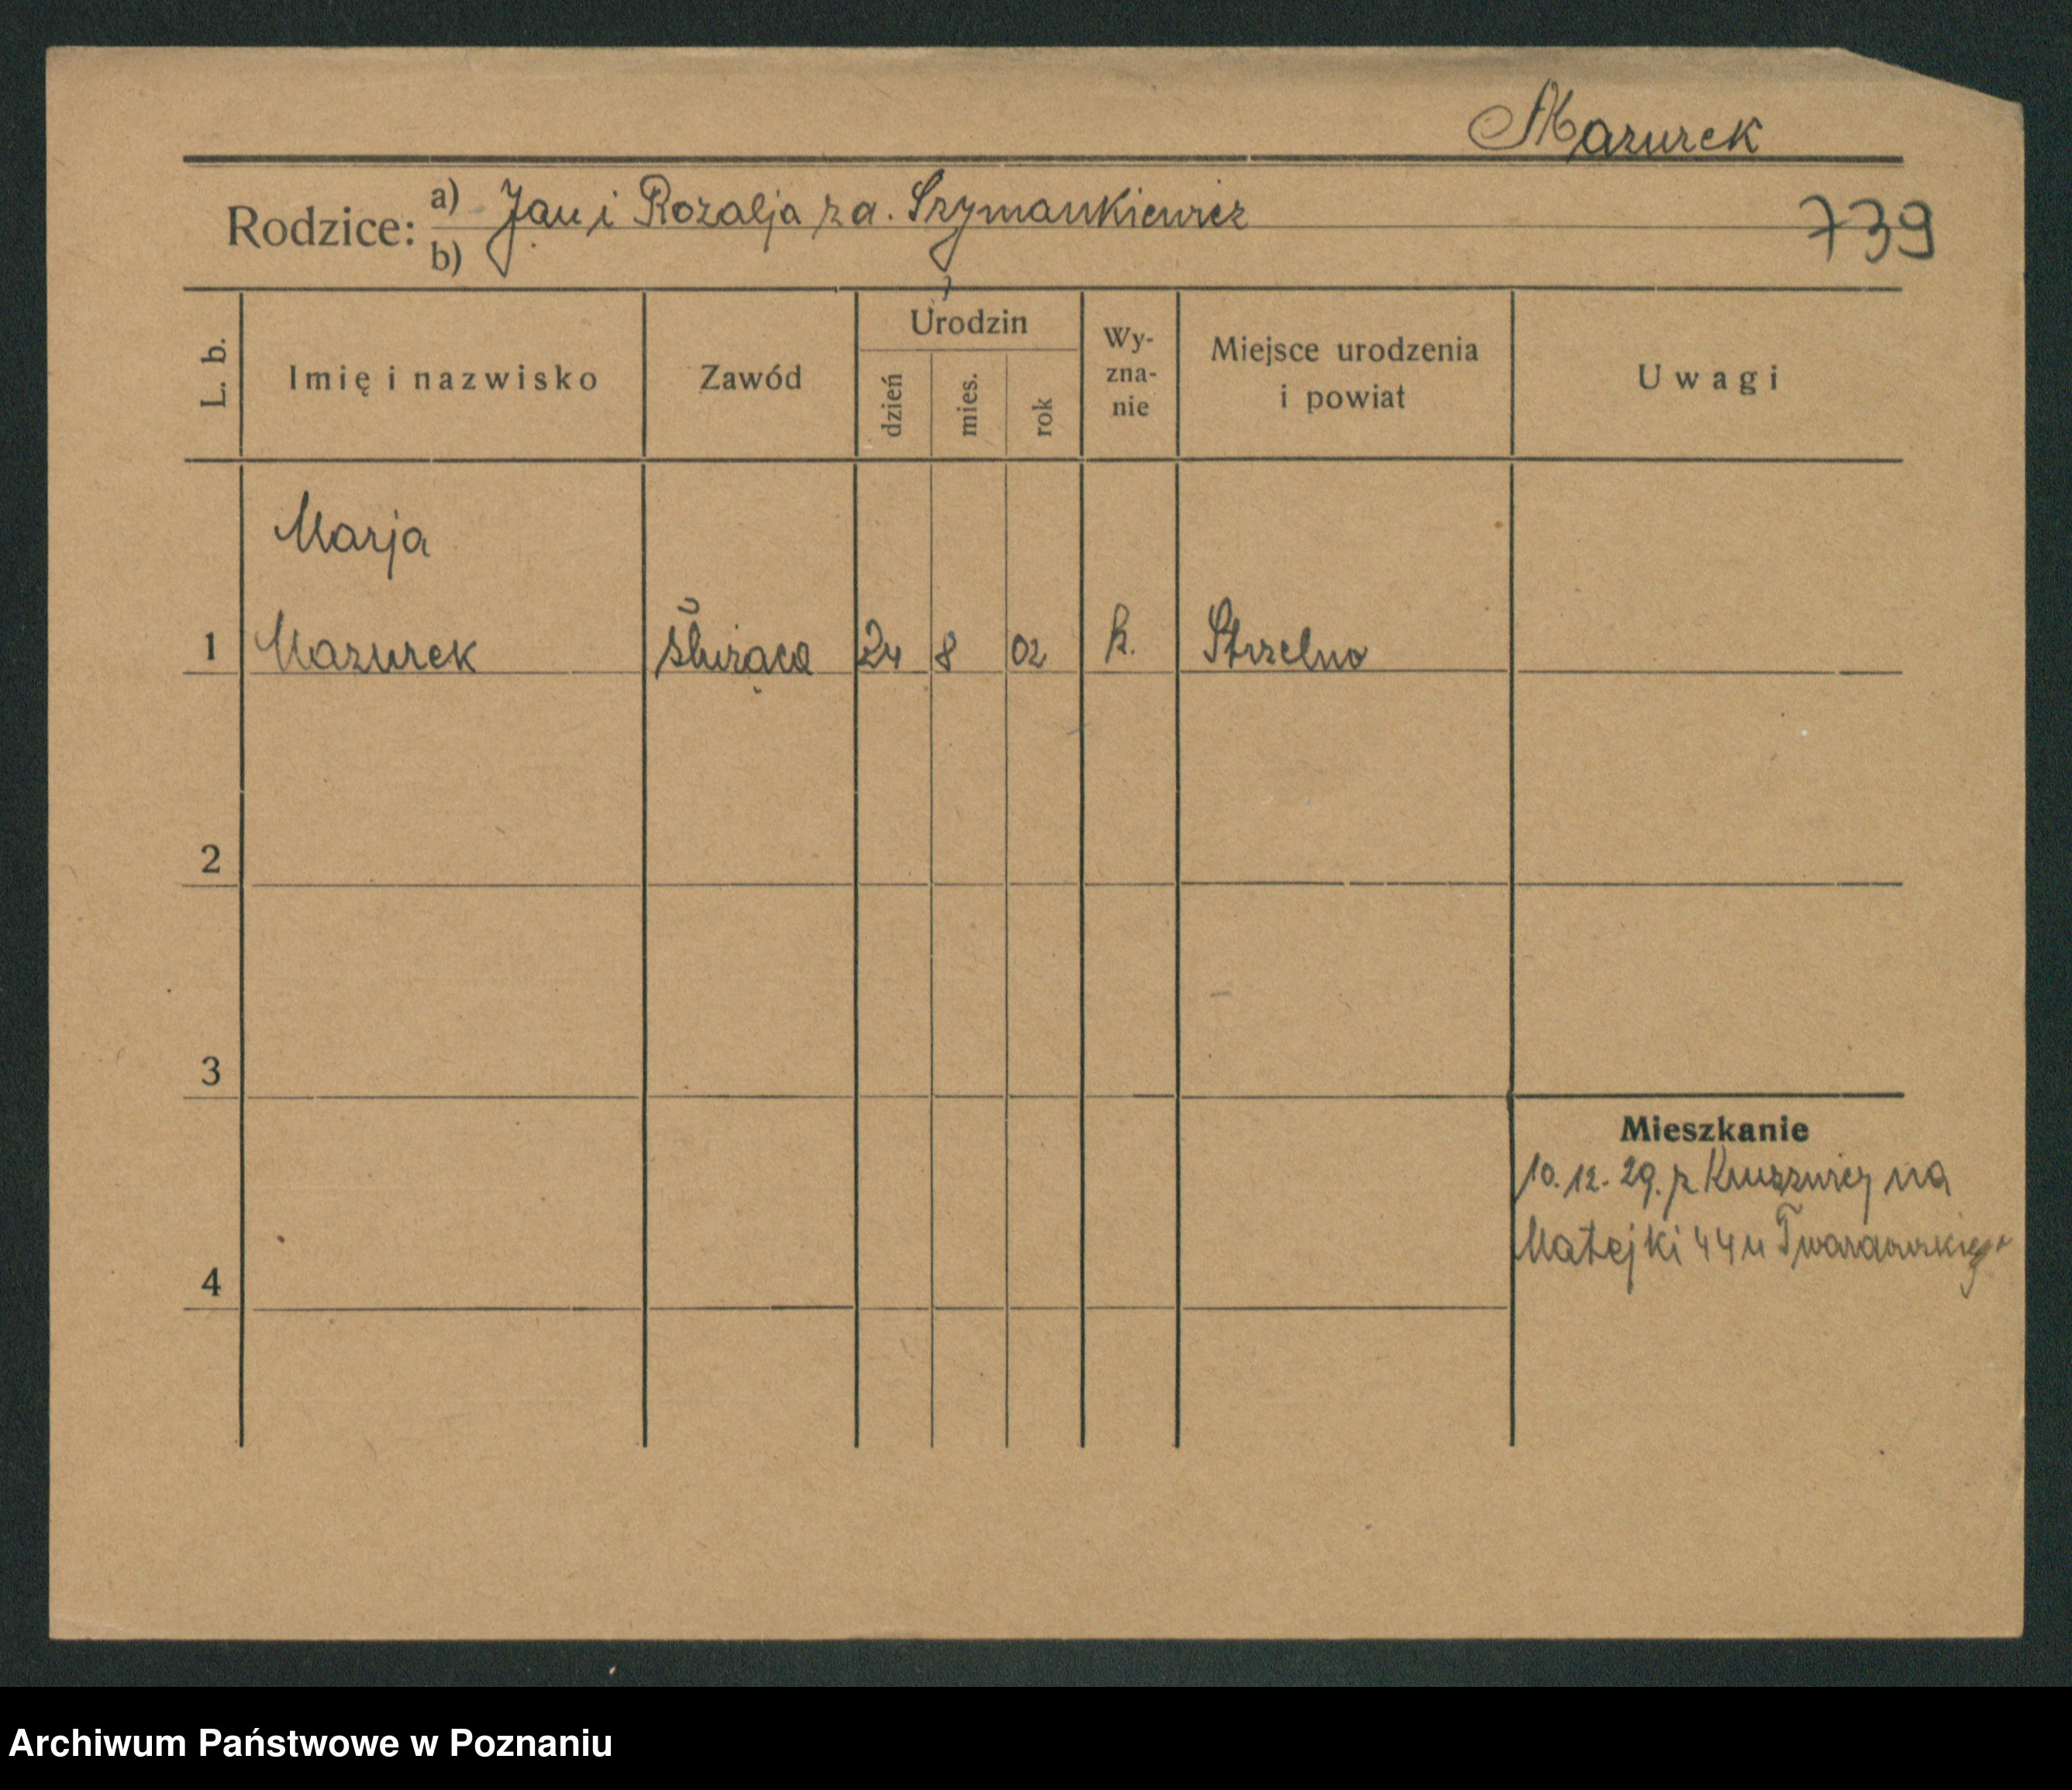 Mazurek
Rodzice: a) Jan i Rozalja z a. Szymankiewicz
b)
739
L. b. Imię i nazwisko Zawód Urodzin dzień mies. rok Wy-zna-nie Miejsce urodzenia i powiat Uwagi
Marja
1 Mazurek służąca 24 8 02 k. Strzelno
2
3
Mieszkanie
10.12.29. z Kruszwicy na
Matejki 44 u Twardowskiego
4
Archiwum Państwowe w Poznaniu